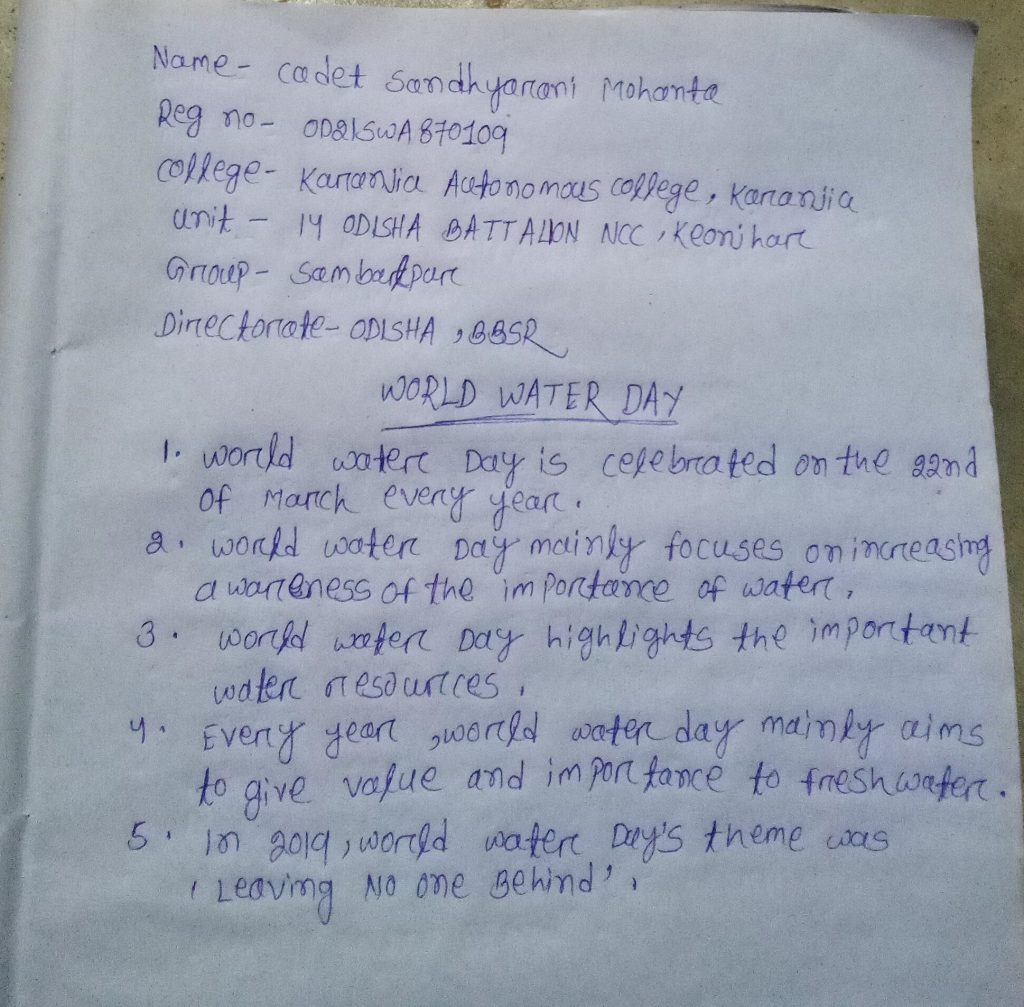 Name - Cadet Sandhyarani Mohanta
Reg no - OD21SWA870109
College - Karanjia Autonomous College, Karanjia
Unit - 14 ODISHA BATTALION NCC, Keonjhar
Group - Sambalpur
Directorate - ODISHA, BBSR
WORLD WATER DAY
1. World water Day is celebrated on the 22nd
of March every year.
2. World water Day mainly focuses on increasing
awareness of the importance of water.
3. World water Day highlights the important
water resources.
4. Every year, world water day mainly aims
to give value and importance to freshwater.
5. In 2019, world water Day's theme was
'Leaving No one Behind'.